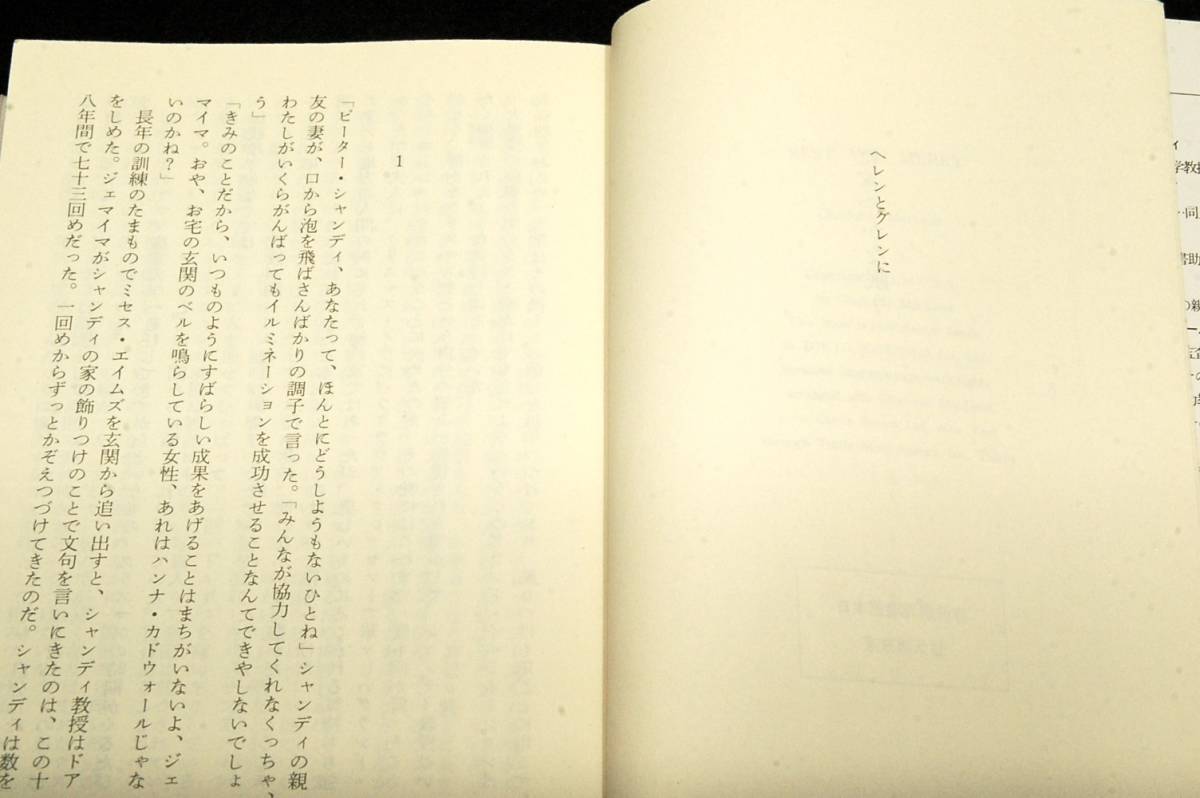 ヘレンとグレンに
1
「ピーター・シャンディ、あなたって、ほんとにどうしようもないひとね」シャンディの親
友の妻が、口から泡を飛ばさんばかりの調子で言った。「みんなが協力してくれなくっちゃ、
わたしがいくらがんばってもイルミネーションを成功させることなんてできやしないでしょ
う」
「きみのことだから、いつものようにすばらしい成果をあげることはまちがいないよ、ジェ
マイマ。おや、お宅の玄関のベルを鳴らしている女性、あれはハンナ・カドウォールじゃな
いのかね?」
長年の訓練のたまものでミセス・エイムズを玄関から追い出すと、シャンディ教授はドア
をしめた。ジェマイマがシャンディの家の飾りつけのことで文句を言いにきたのは、この十
八年間で七十三回めだった。一回めからずっとかぞえつづけてきたのだ。シャンディは数を